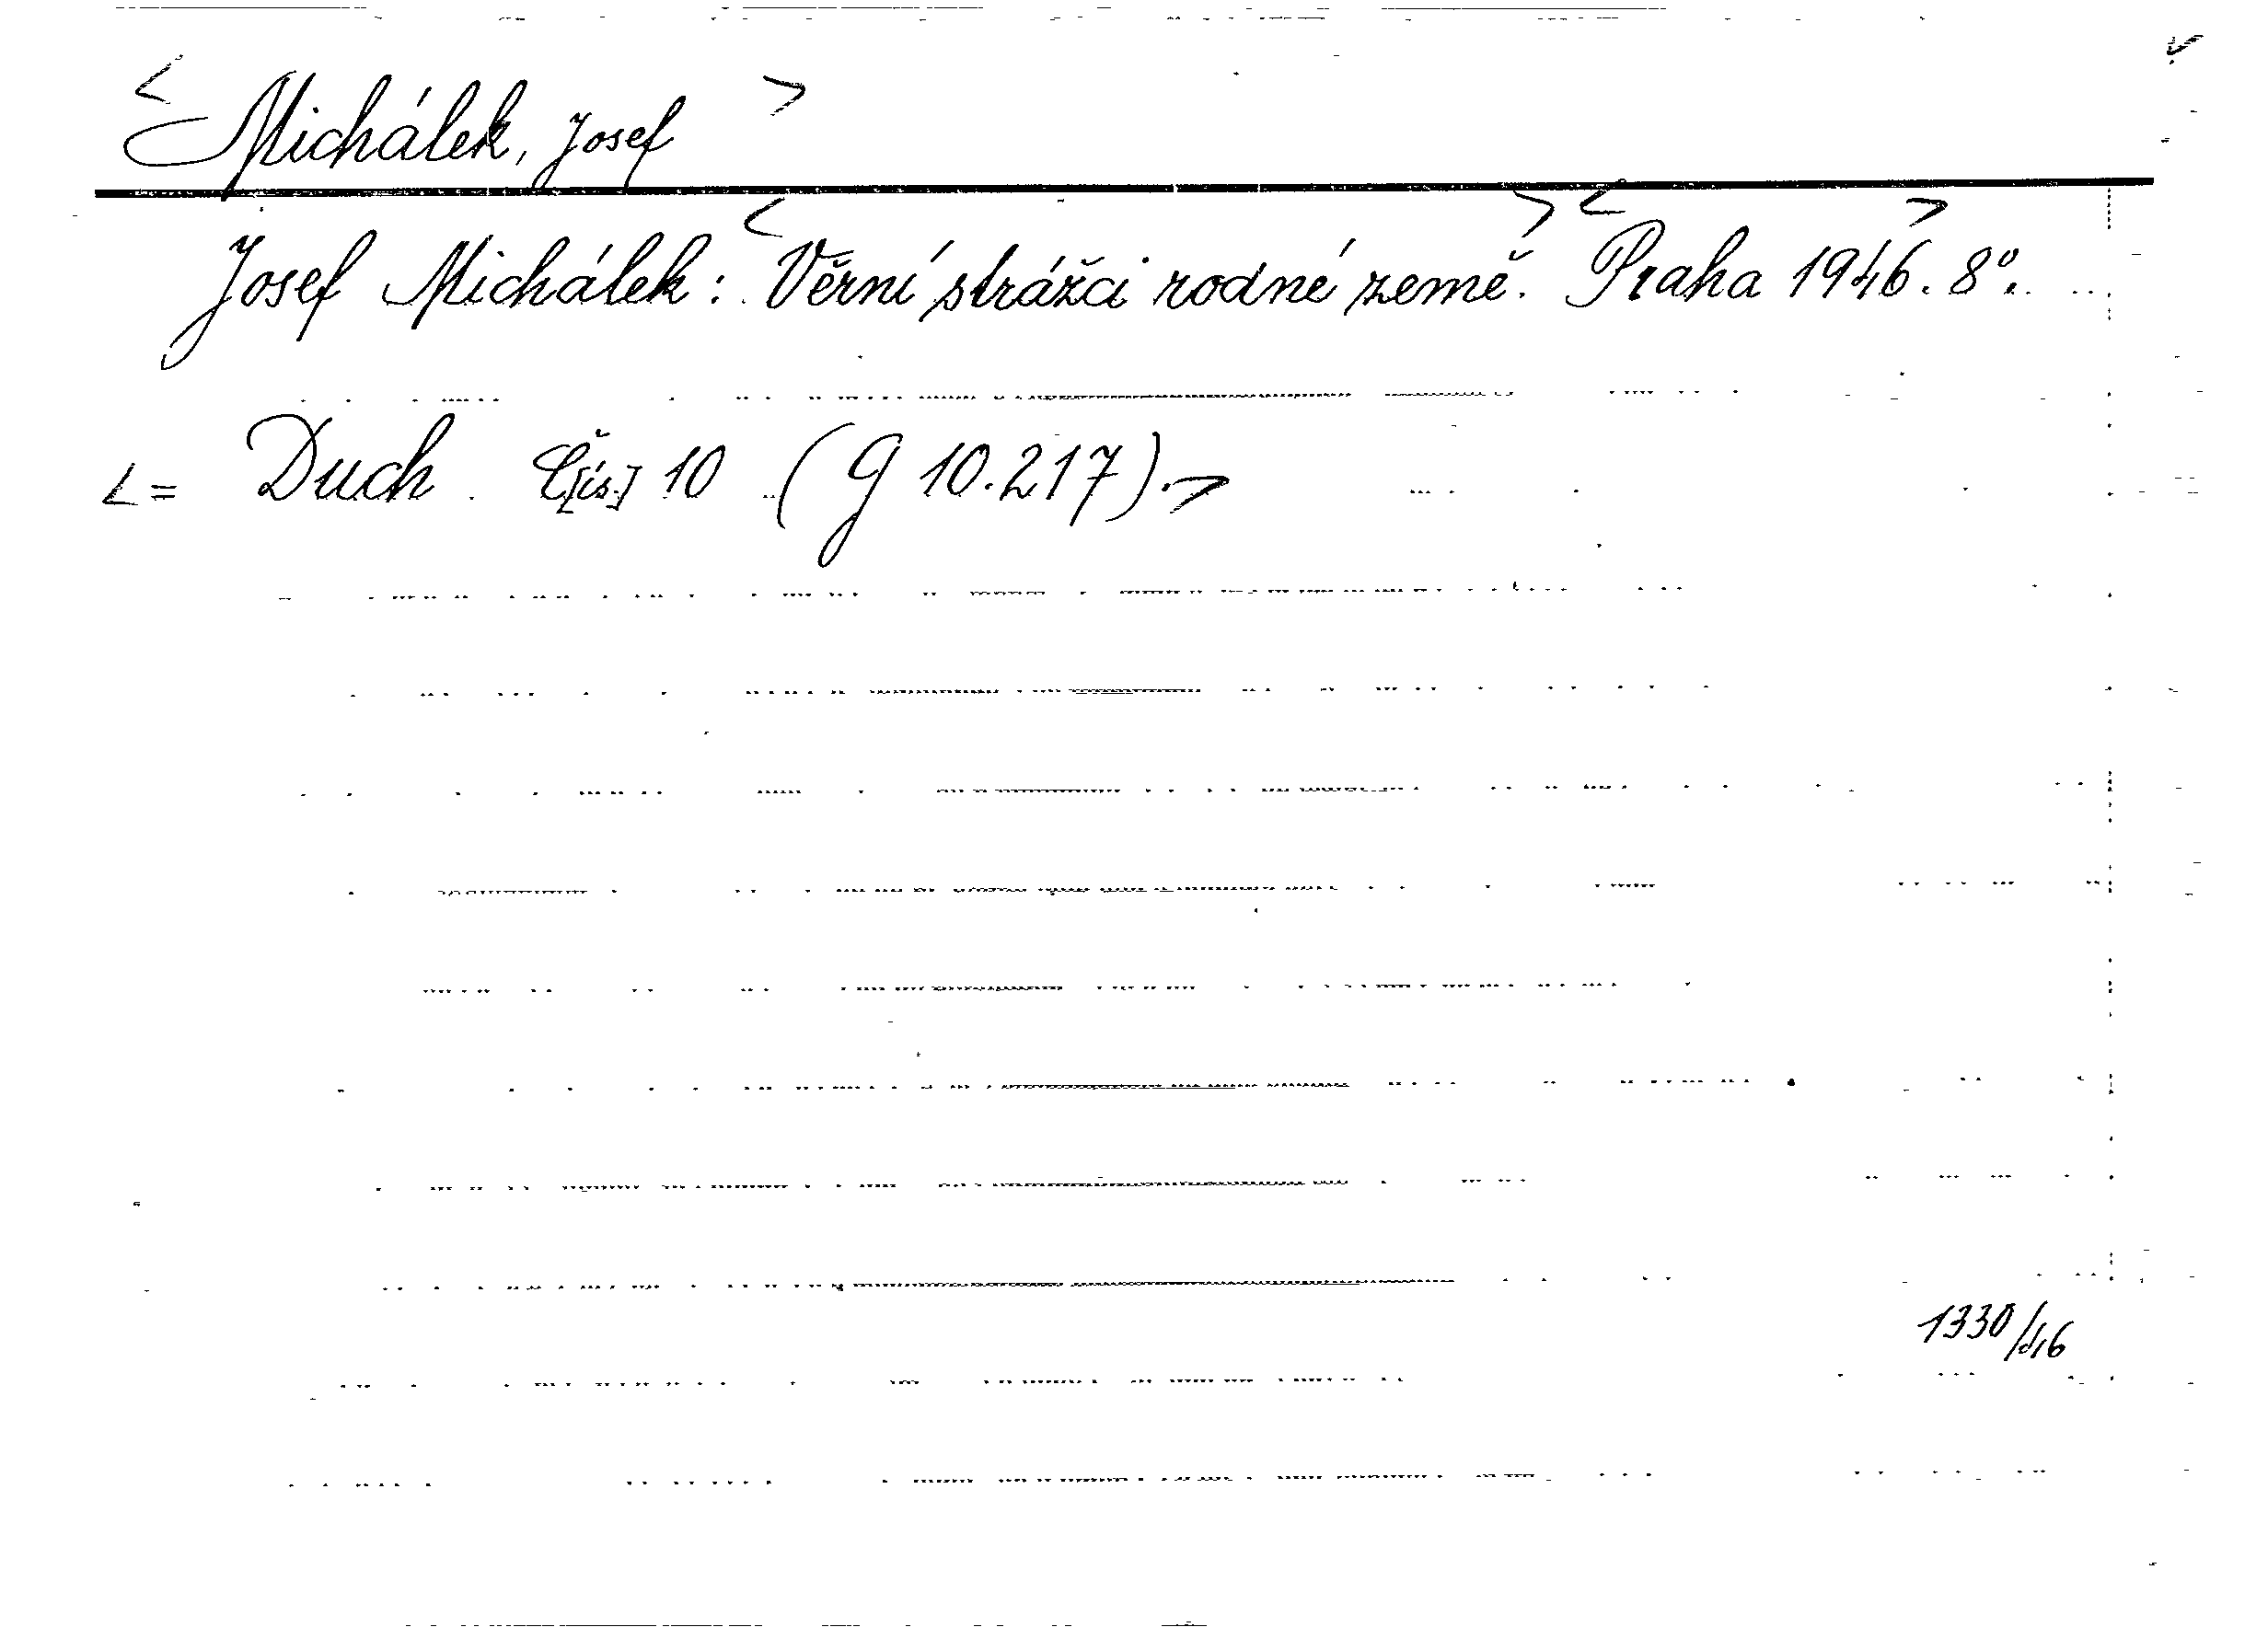 <Michálek, Josef>
Josef Michálek: <Věrní strážci rodné země.> <Praha 1946.> 8°.
<= Duch. Č[ís.] 10 (G 10.217).>
1330/46